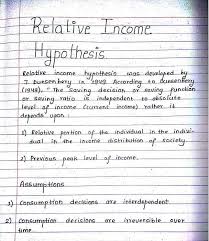 Relative Income
Hypothesis
Relative income hypothesis was developed by
J. Duesenberry in 1949. According to Duesenberry
(1949), "The saving decision or saving function
or saving ratio is independent to absolute
level of income (current income) rather it
depends upon:
1) Relative portion of the individual in the indivi-
dual in the income distribution of society.
2) Previous peak level of income.
Assumptions
1) Consumption decisions are interdependent.
2) Consumption decisions are irreversible over
time.